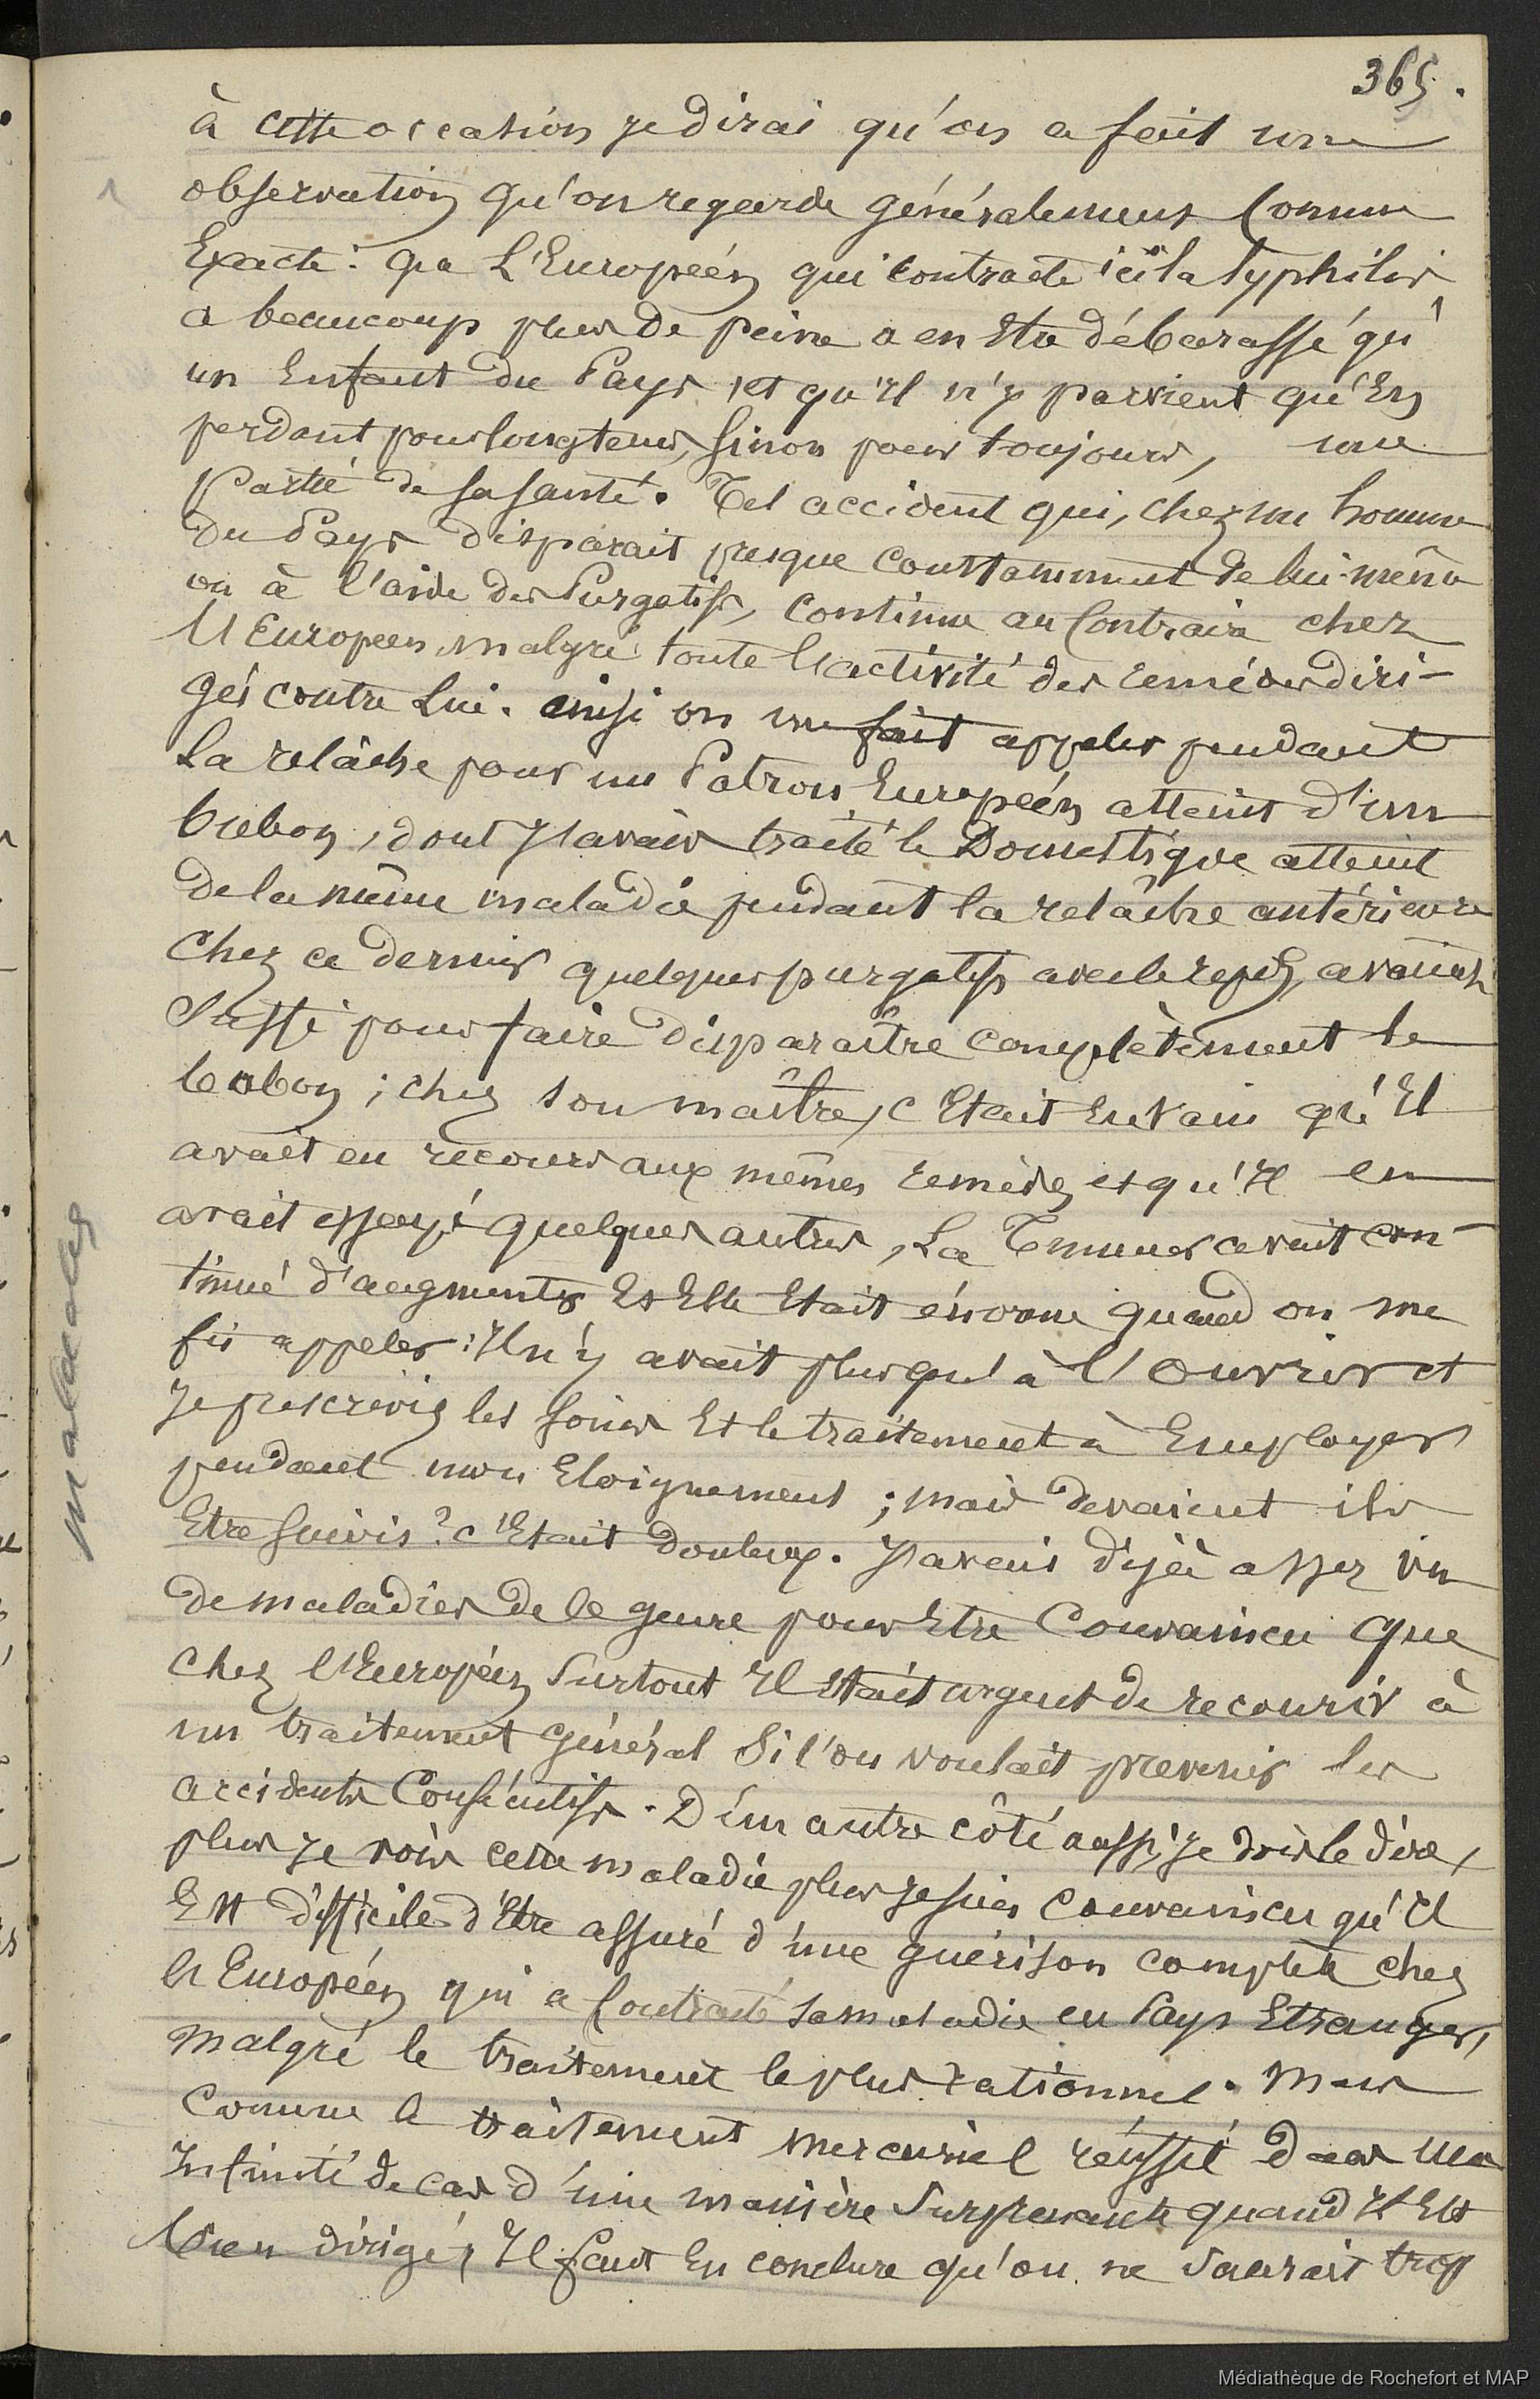 365.
à cette occasion je dirai qu'on a fait une
observation qu'on regarde généralement Comme
Exacte : que L'Europeén qui contracte ici la Syphilis
a beaucoup plus de peine a en Etre débarassé qu'
un Enfant du Pays, et qu'il n'y parvient qu'En
perdant pour longtems, Sinon pour toujours, une
Partie de sa santé. Tel accident qui, chez un homme
du Pays disparait presque constamment de lui-même
ou à l'aide des Purgatifs, continue au Contraire chez
l'Européen, malgré toute l'activité des remédes diri-
gés contre Lui. ainsi on me fait appeler pendant
La relâche pour un Patron Européen atteint d'un
bubon, dont j'avais traité le Domestique atteint
de la même maladie pendant la relâche antérieure
Chez ce dernier quelques purgatifs avec le repos, avaient
Suffi pour faire disparaître complètement le
bubon ; chez son maître, c'Etait En vain qu'Il
avait eu recours aux mêmes remèdes et qu'Il en
avait essayé quelques autres, La Tumeur avait con-
tinué d'augmenter Et Elle Etait énorme quand on me
fit appeler : Il n'y avait plus qu'à l'ouvrir et
Je prescrivis les soins Et le traitement à Employer
pendant mon Eloignement ; mais devaient ils
Etre suivis ? c'Etait douteux. J'avais déjà assez vu
de maladies de ce genre pour Etre Convaincu que
Chez l'Européen Surtout Il était urgent de recourir à
un traitement général Si l'on voulait prevenir les
accidents Conséutifs. D'un autre côté aussi, je dois le dire,
plus je vois cette maladie plus je suis Convaincu qu'Il
Est difficile d'Etre assuré d'une guérison complète chez
l'Européen qui a Contracté sa maladie en Pays Etranger,
malgré le traitement le plus rationnel. Mais
Comme le traitement mercuriel réussit dans une
Infinité de cas d'une manière Surprenante quand Il Est
bien dirigé, Il faut En conclure qu'on ne Saurait trop
maladies
Médiathèque de Rochefort et MAP